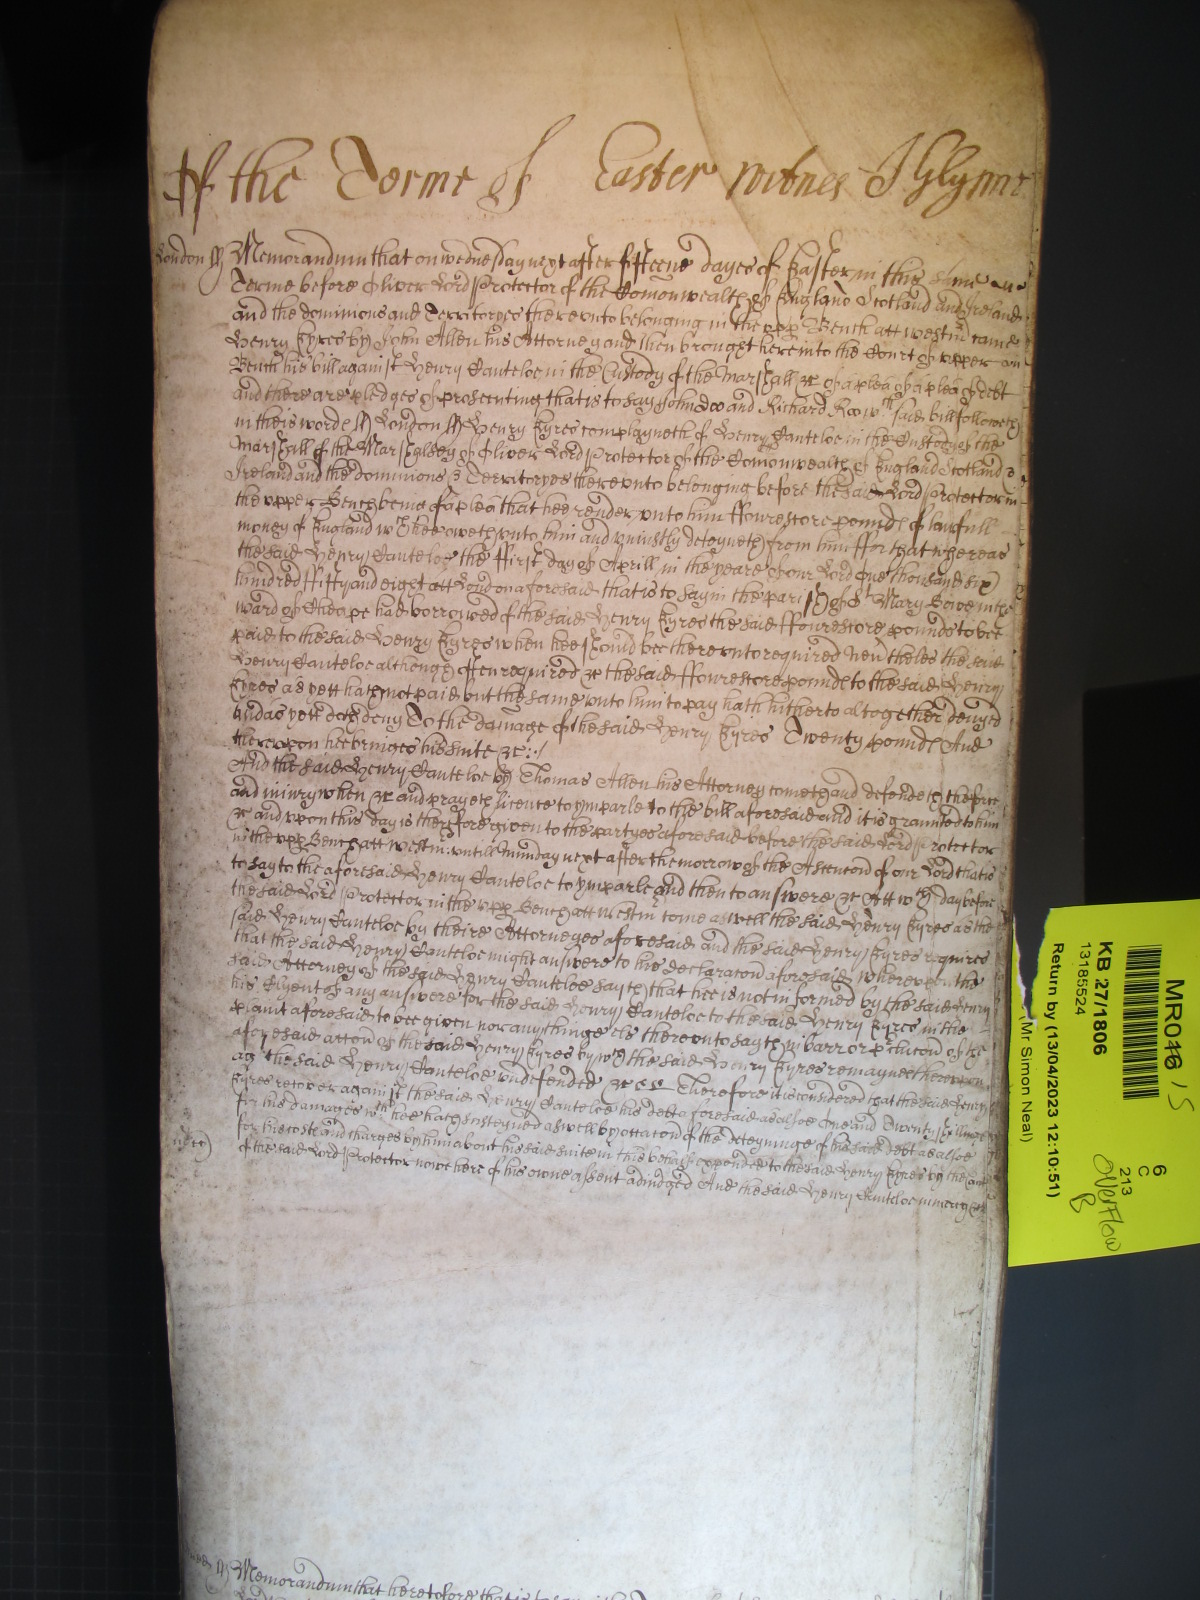 Of the Terme of Easter witnes J Glynne
London ss Memorandum that on wednesday next after fifteene dayes of Easter in this same
Terme before Oliver Lord Protector of the Comonwealth of England Scotland and Ireland
and the dominions and Territoryes thereunto belonging in the upp Bench att westm came
Henry Eyres by John Allen his Attorney and then brought here into the Court of upper
Bench his bill against Henry Canteloe in the Custody of the Marshall &c of a plea of a plea of debt
and there are pledges of prosecuting that is to say John Doo and Richard Roo wch said bill followeth
in theis words ss London ss Henry Eyres complayneth of Henry Canteloe in the Custody of the
Marshall of the Marshalsey of Oliver Lord Protector of the Comonwealth of England Scotland &
Ireland and the dominions & Territoryes thereunto belonging before the said Lord Protector in
the upper Bench being of a plea that hee render unto him ffourescore pounds of lawfull
money of England wch hee oweth unto him and uniustly deteyneth from him ffor that whereas
the said Henry Canteloe the ffirst day of Aprill in the yeare of our Lord One thousand six
hundred ffifty and eight att London aforesaid that is to say in the parish of St Mary Bowe in the
ward of Cheape had borrowed of the said Henry Eyres the said ffourescore pounds to bee
paid to the said Henry Eyres when hee should bee thereunto required Nevtheles the said
Henry Canteloe although often required &c the said ffourescore pounds to the said Henry
Eyres as yett hath not paid but the same unto him to pay hath hitherto altogether denyed
And as yett doth deny To the damage of the said Henry Eyres Twenty pounds And
thereupon hee bringes his suite &c
And the said Henry Canteloe by Thomas Allen his Attorney cometh and defendeth the force
and iniury when &c and prayeth licence to ymparle to the bill aforesaid and it is graunted to him
&c and upon this day is therefore given to the partyes aforesaid before the said Lord Protector
in the upp Bench att westm: untill Munday next after the morrow of the Ascencon of our Lord that is
to say to the aforesaid Henry Canteloe to ymparle and then to answere &c Att wch day before
the said Lord Protector in the upp Bench att westm come aswell the said Henry Eyres as the
said Henry Canteloe by theire Attorneyes aforesaid and the said Henry Eyres requires
that the said Henry Canteloe might answere to his declaracon aforesaid whereupon the
said Attorney of the said Henry Canteloe sayth that hee is not informed by the said Henry
his Clyent of any answere for the said Henry Canteloe to the said Henry Eyres in the
plaint aforesaid to bee given nor any thinge els thereunto sayth in barr or pclucon of the
aforesaid accon of the said Henry Eyres by wch the said Henry Eyres remayneth thereupon
agt the said Henry Canteloe undefended &c Therefore it is considered that the said Henry
Eyres recover against the said Henry Canteloe his debt aforesaid as alsoe One and Twenty shillings
for his damages wch hee hath susteyned aswell by occacon of the deteyninge of his said debt as alsoe
for his costs and charges by him about his said suite in this behalf expended to the said Henry Eyres by the Court
of the said Lord Protector nowe here of his owne assent adiudged And the said Henry Canteloe in mercy &c
Memorandum that heretofore that is to say
MR046
15
KB 27/1806
13185524
Return by (13/04/2023 12:10:51)
(Mr Simon Neal)
6
C
213
Overflow
B